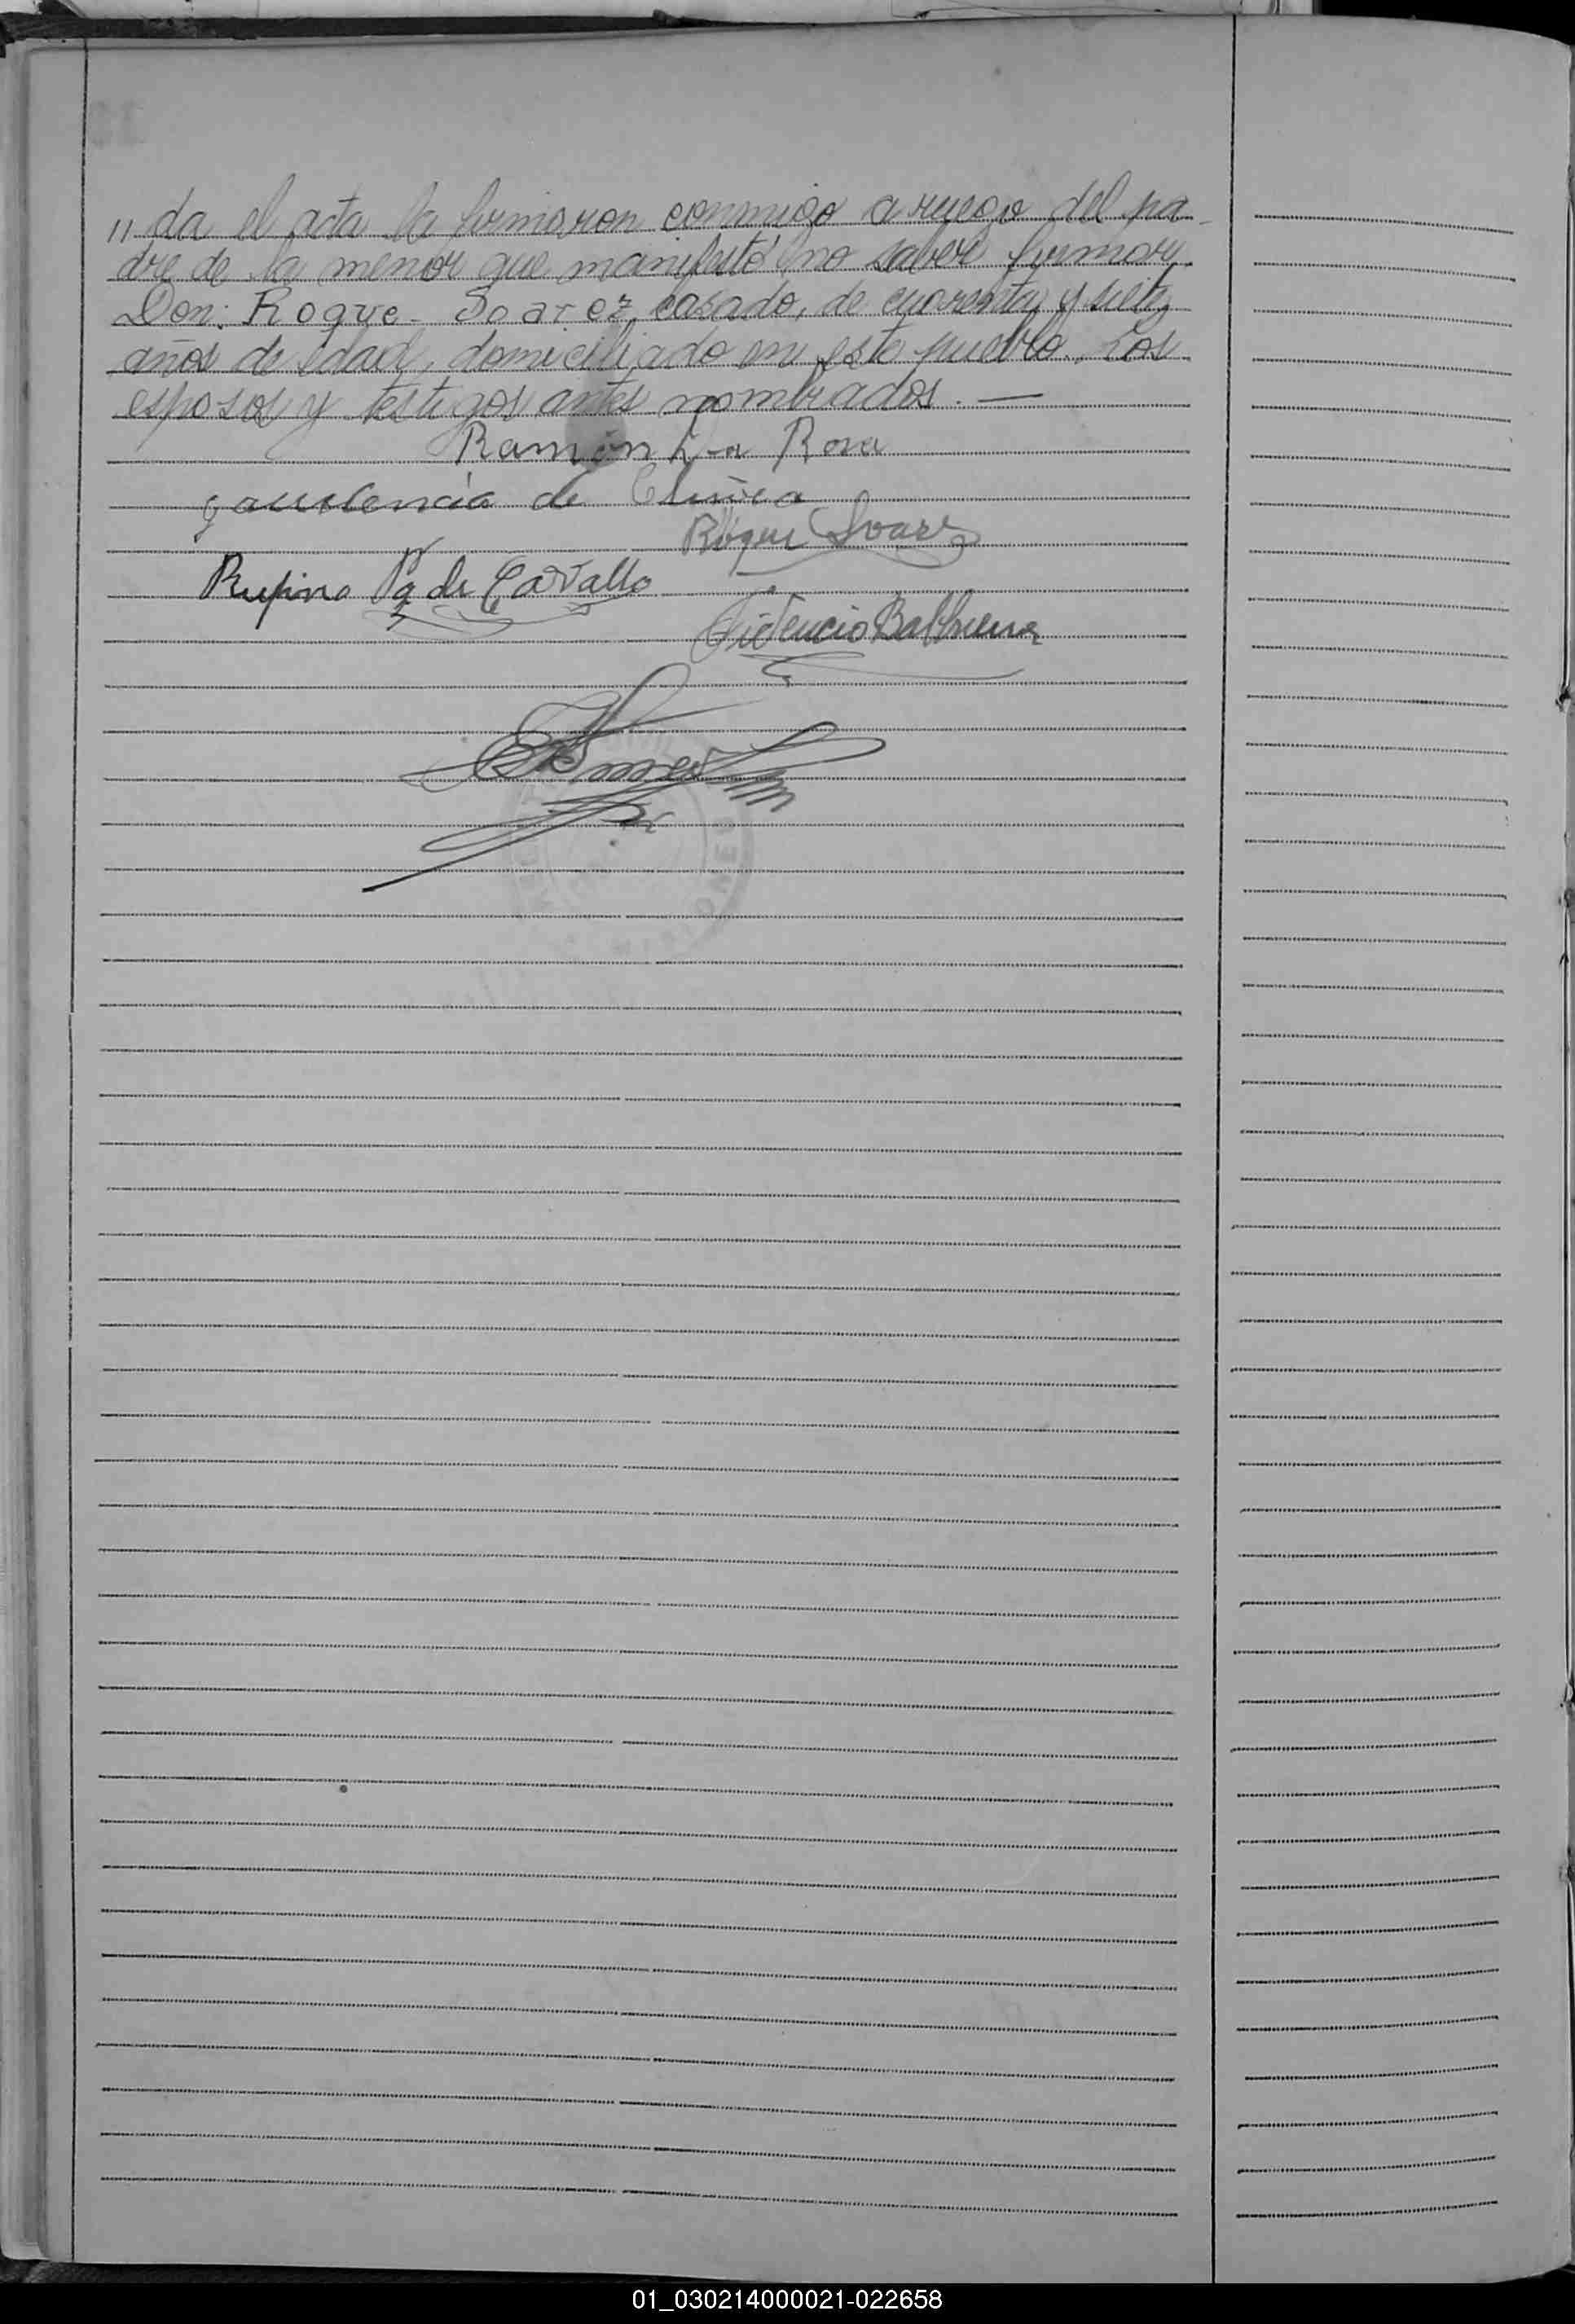 " da el acta la firmaron conmigo a ruego del pa-
dre de la menor que manifestó no saber firmar,
Don: Roque - Soarez, casado, de cuarenta y siete
años de edad, domiciliado en este pueblo, Los
esposos y testigos antes nombrados. —
Ramón La Rosa
de
Roque Soarez
Rufino Pa de Cavallo
Fidencio Balbuena
01_030214000021-022658